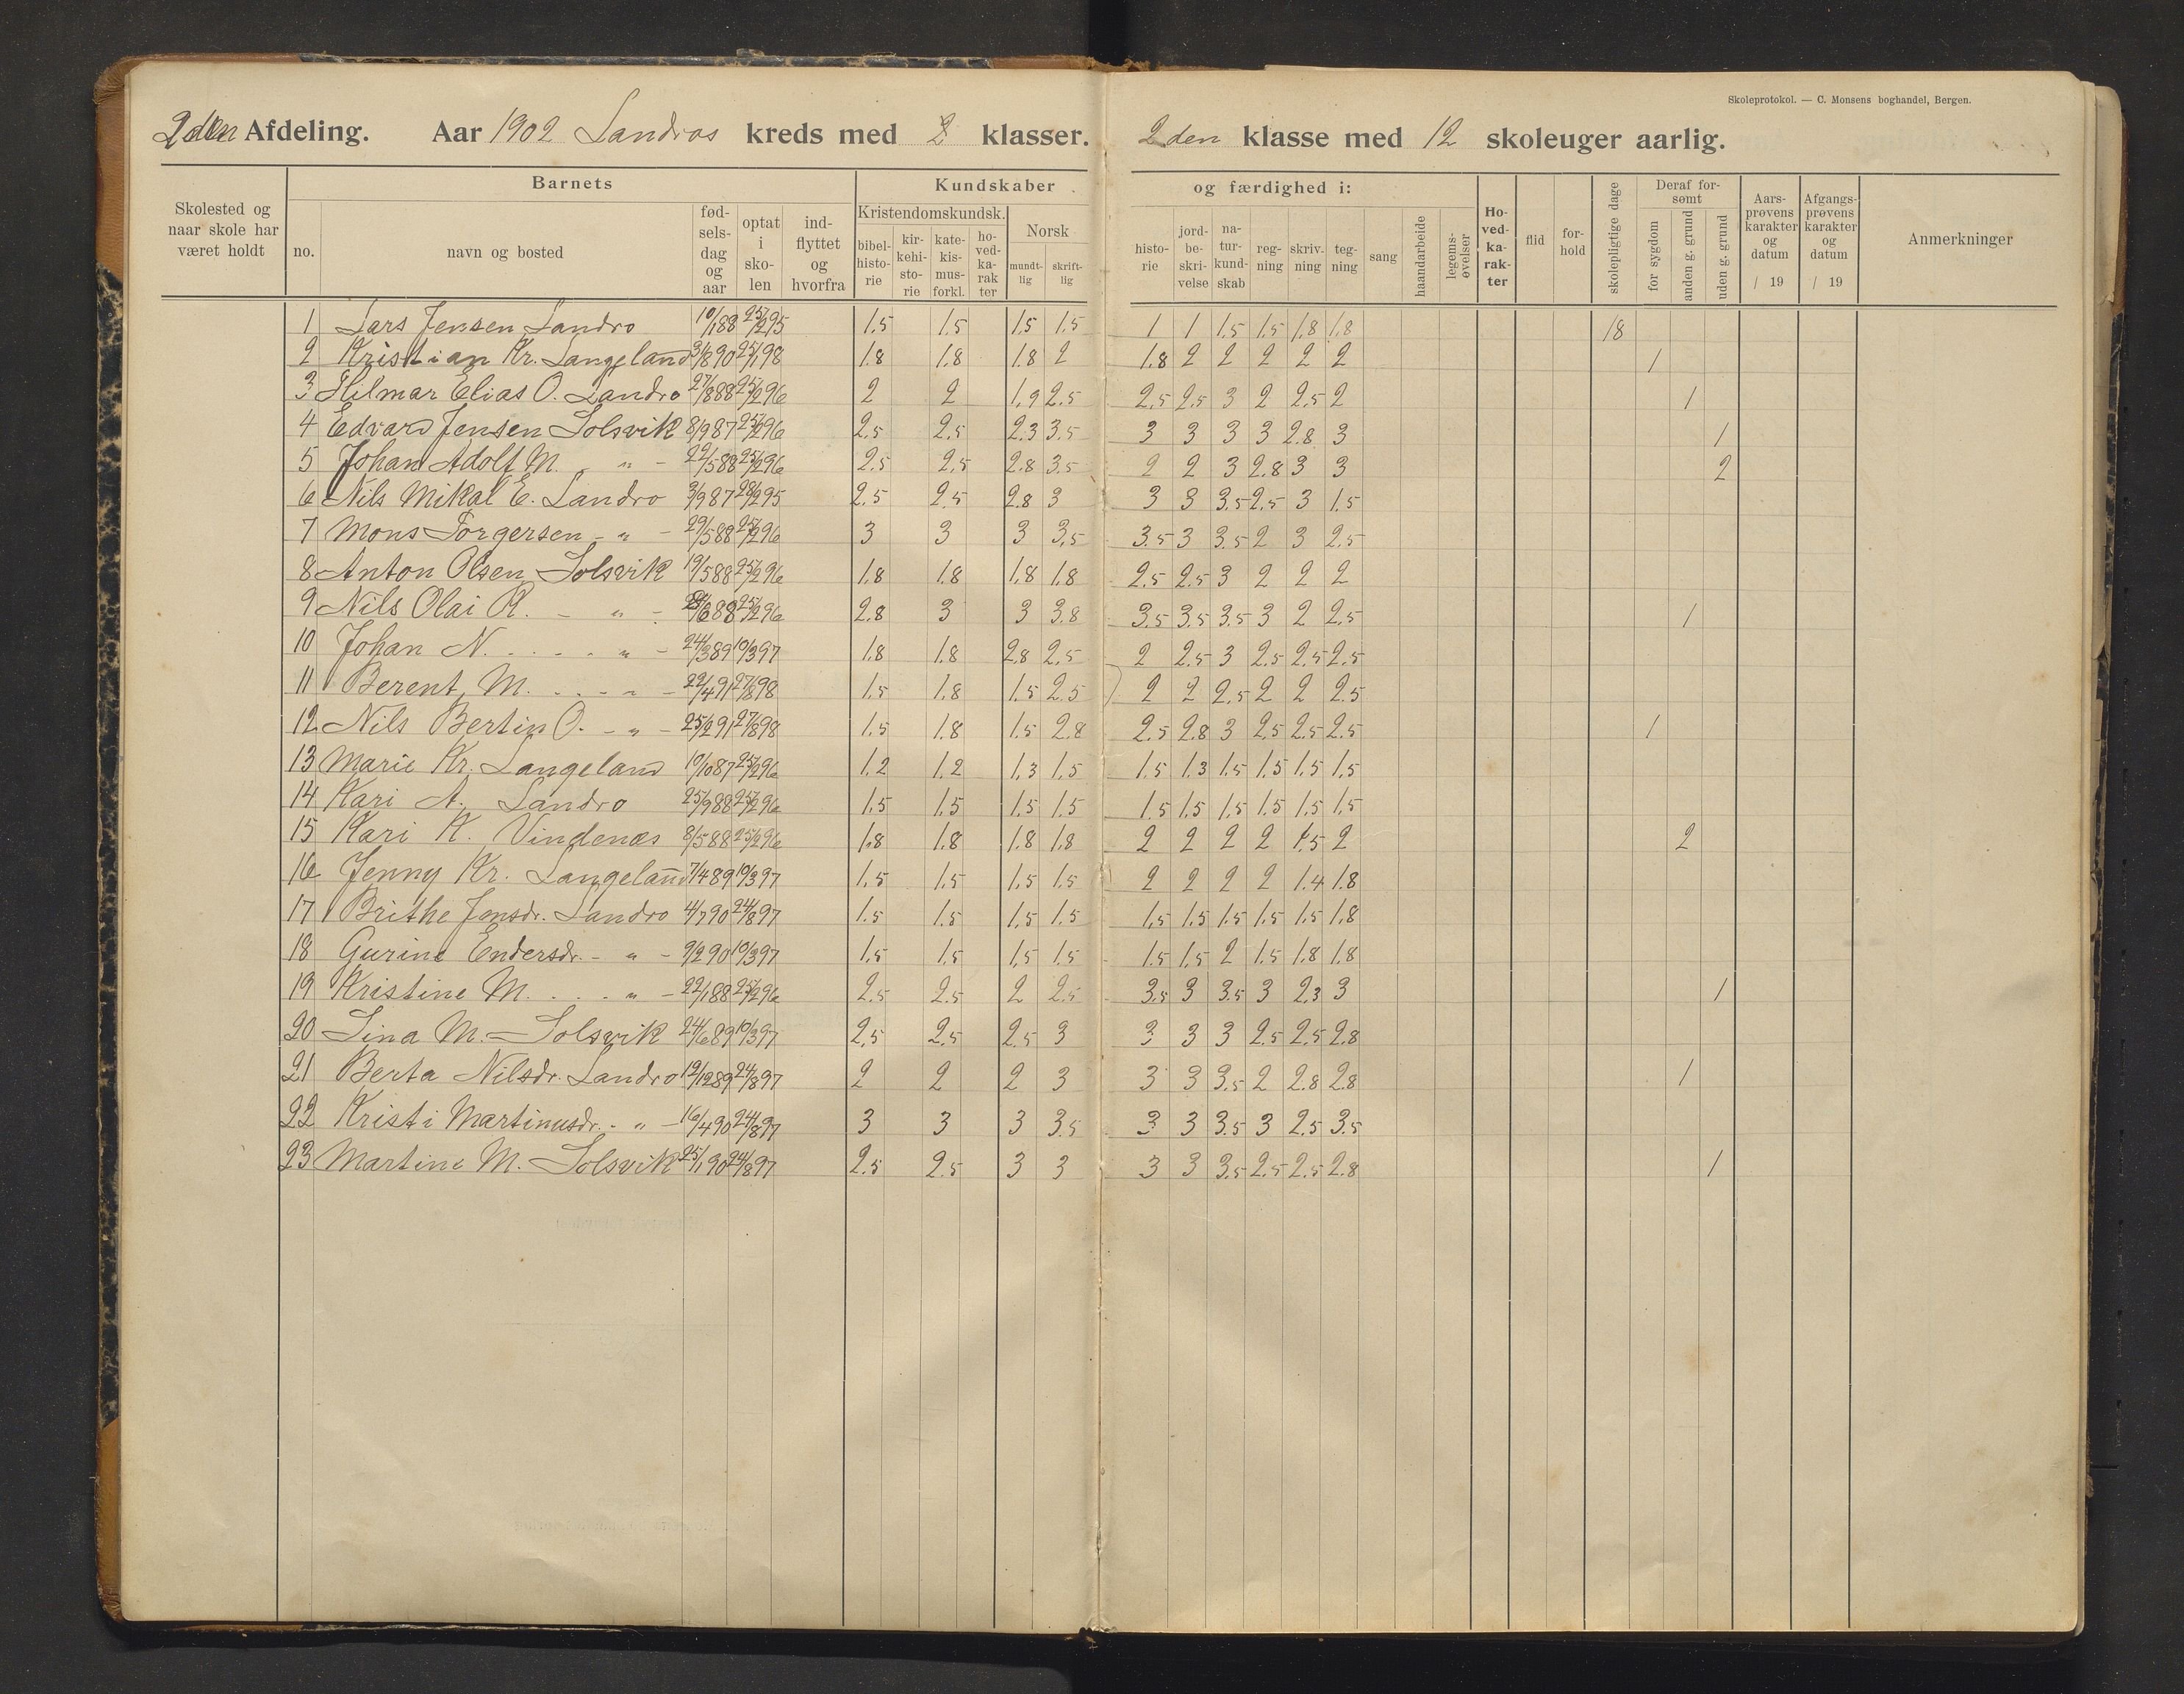 Skoleprotokol. — C. Monsens boghandel, Bergen.
2den Afdeling. Aar 1902 Landros kreds med 2 klasser. 2den klasse med 12 skoleuger aarlig.
Skolested og naar skole har været holdt
Barnets
no.
navn og bosted
fød-sels-dag og aar
optat i sko-len
ind-flyttet og hvorfra
Kundskaber og færdighed i:
Kristendomskundsk.
bibel-histo-rie
kir-kehi-sto-rie
kate-kis-mus-forkl.
ho-ved-ka-rak ter
Norsk
mundt-lig
skrift-lig
histo-rie
jord-be-skri-velse
na-tur-kund-skab
reg-ning
skriv-ning
teg-ning
sang
haandarbeide
legems-øvelser
Ho-ved-ka-rak-ter
flid
for-hold
skolepligtige dage
Deraf for-sømt
for sygdom
anden g. grund
uden g. grund
Aars-prøvens karakter og datum / 19
Afgangs-prøvens karakter og datum / 19
Anmerkninger
1 Lars Jensen Landro 10/1 88 25/2 95 1.5 1.5 1.5 1.5 1 1 1.5 1.5 1.8 1.8 18
2 Kristian Kr. Langeland 31/8 90 25/1 98 1.8 1.8 1.8 2 1.8 2 2 2 2 2 1
3 Hilmar Elias O. Landro 27/8 88 25/2 96 2 2 1.9 2.5 2.5 2.5 3 2 2.5 2 1
4 Edvard Jensen Solsvik 8/9 87 25/2 96 2.5 2.5 2.3 3.5 3 3 3 3 2.8 3 1
5 Johan Adolf M. - " - 22/5 88 25/2 96 2.5 2.5 2.8 3.5 2 2 3 2.8 3 3 2
6 Nils Mikal E. Landro 3/9 87 28/2 95 2.5 2.5 2.8 3 3 3 3.5 2.5 3 1.5
7 Mons Torgersen - " - 29/5 88 25/2 96 3 3 3 3.5 3.5 3 3.5 2 3 2.5
8 Anton Olsen Solsvik 19/5 88 25/2 96 1.8 1.8 1.8 1.8 2.5 2.5 3 2 2 2
9 Nils Olai K. - " - 6 88 25/2 96 2.8 3 3 3.8 3.5 3.5 3.5 3 2 2.5 1
10 Johan N. . . . . " - 24/3 89 10/3 97 1.8 1.8 2.8 2.5 2 2.5 3 2.5 2.5 2.5
11 Berent M. . . - " - 22/4 91 27/8 98 1.5 1.8 1.5 2.5 2 2 2.5 2 2 2.5
12 Nils Bertin O. - " - 25/2 91 27/8 98 1.5 1.8 1.5 2.8 2.5 2.8 3 2.5 2.5 2.5 1
13 Marie Kr. Langeland 10/10 87 25/2 96 1.2 1.2 1.3 1.5 1.5 1.3 1.5 1.5 1.5 1.5
14 Kari A. Landro 25/9 88 25/2 96 1.5 1.5 1.5 1.5 1.5 1.5 1.5 1.5 1.5 1.5
15 Kari K. Vindenæs 8/5 88 25/2 96 1.8 1.8 1.8 1.8 2 2 2 2 1.5 2 2
16 Jenny Kr. Langeland 7/4 89 10/3 97 1.5 1.5 1.5 1.5 2 2 2 2 1.4 1.8
17 Brithe Jensdr. Landro 4/7 90 24/8 97 1.5 1.5 1.5 1.5 1.5 1.5 1.5 1.5 1.5 1.8
18 Gurine Endersdr. - " - 9/2 90 10/3 97 1.5 1.5 1.5 1.5 1.5 1.5 2 1.5 1.8 1.8
19 Kristine M. . . . " - 22/1 88 25/2 96 2.5 2.5 2 2.5 3.5 3 3.5 3 2.3 3 1
20 Lina M. - Solsvik 24/6 89 10/3 97 2.5 2.5 2.5 3 3 3 3 2.5 2.5 2.8
21 Berta Nilsdr. Landro 12/12 89 24/8 97 2 2 2 3 3 3 3.5 2 2.8 2.8 1
22 Kristi Martinusdr. - " - 16/4 90 24/8 97 3 3 3 3.5 3 3 3.5 3 2.5 3.5
23 Martine M. Solsvik 25/1 90 24/8 97 2.5 2.5 3 3 3 3 3.5 2.5 2.5 2.8 1